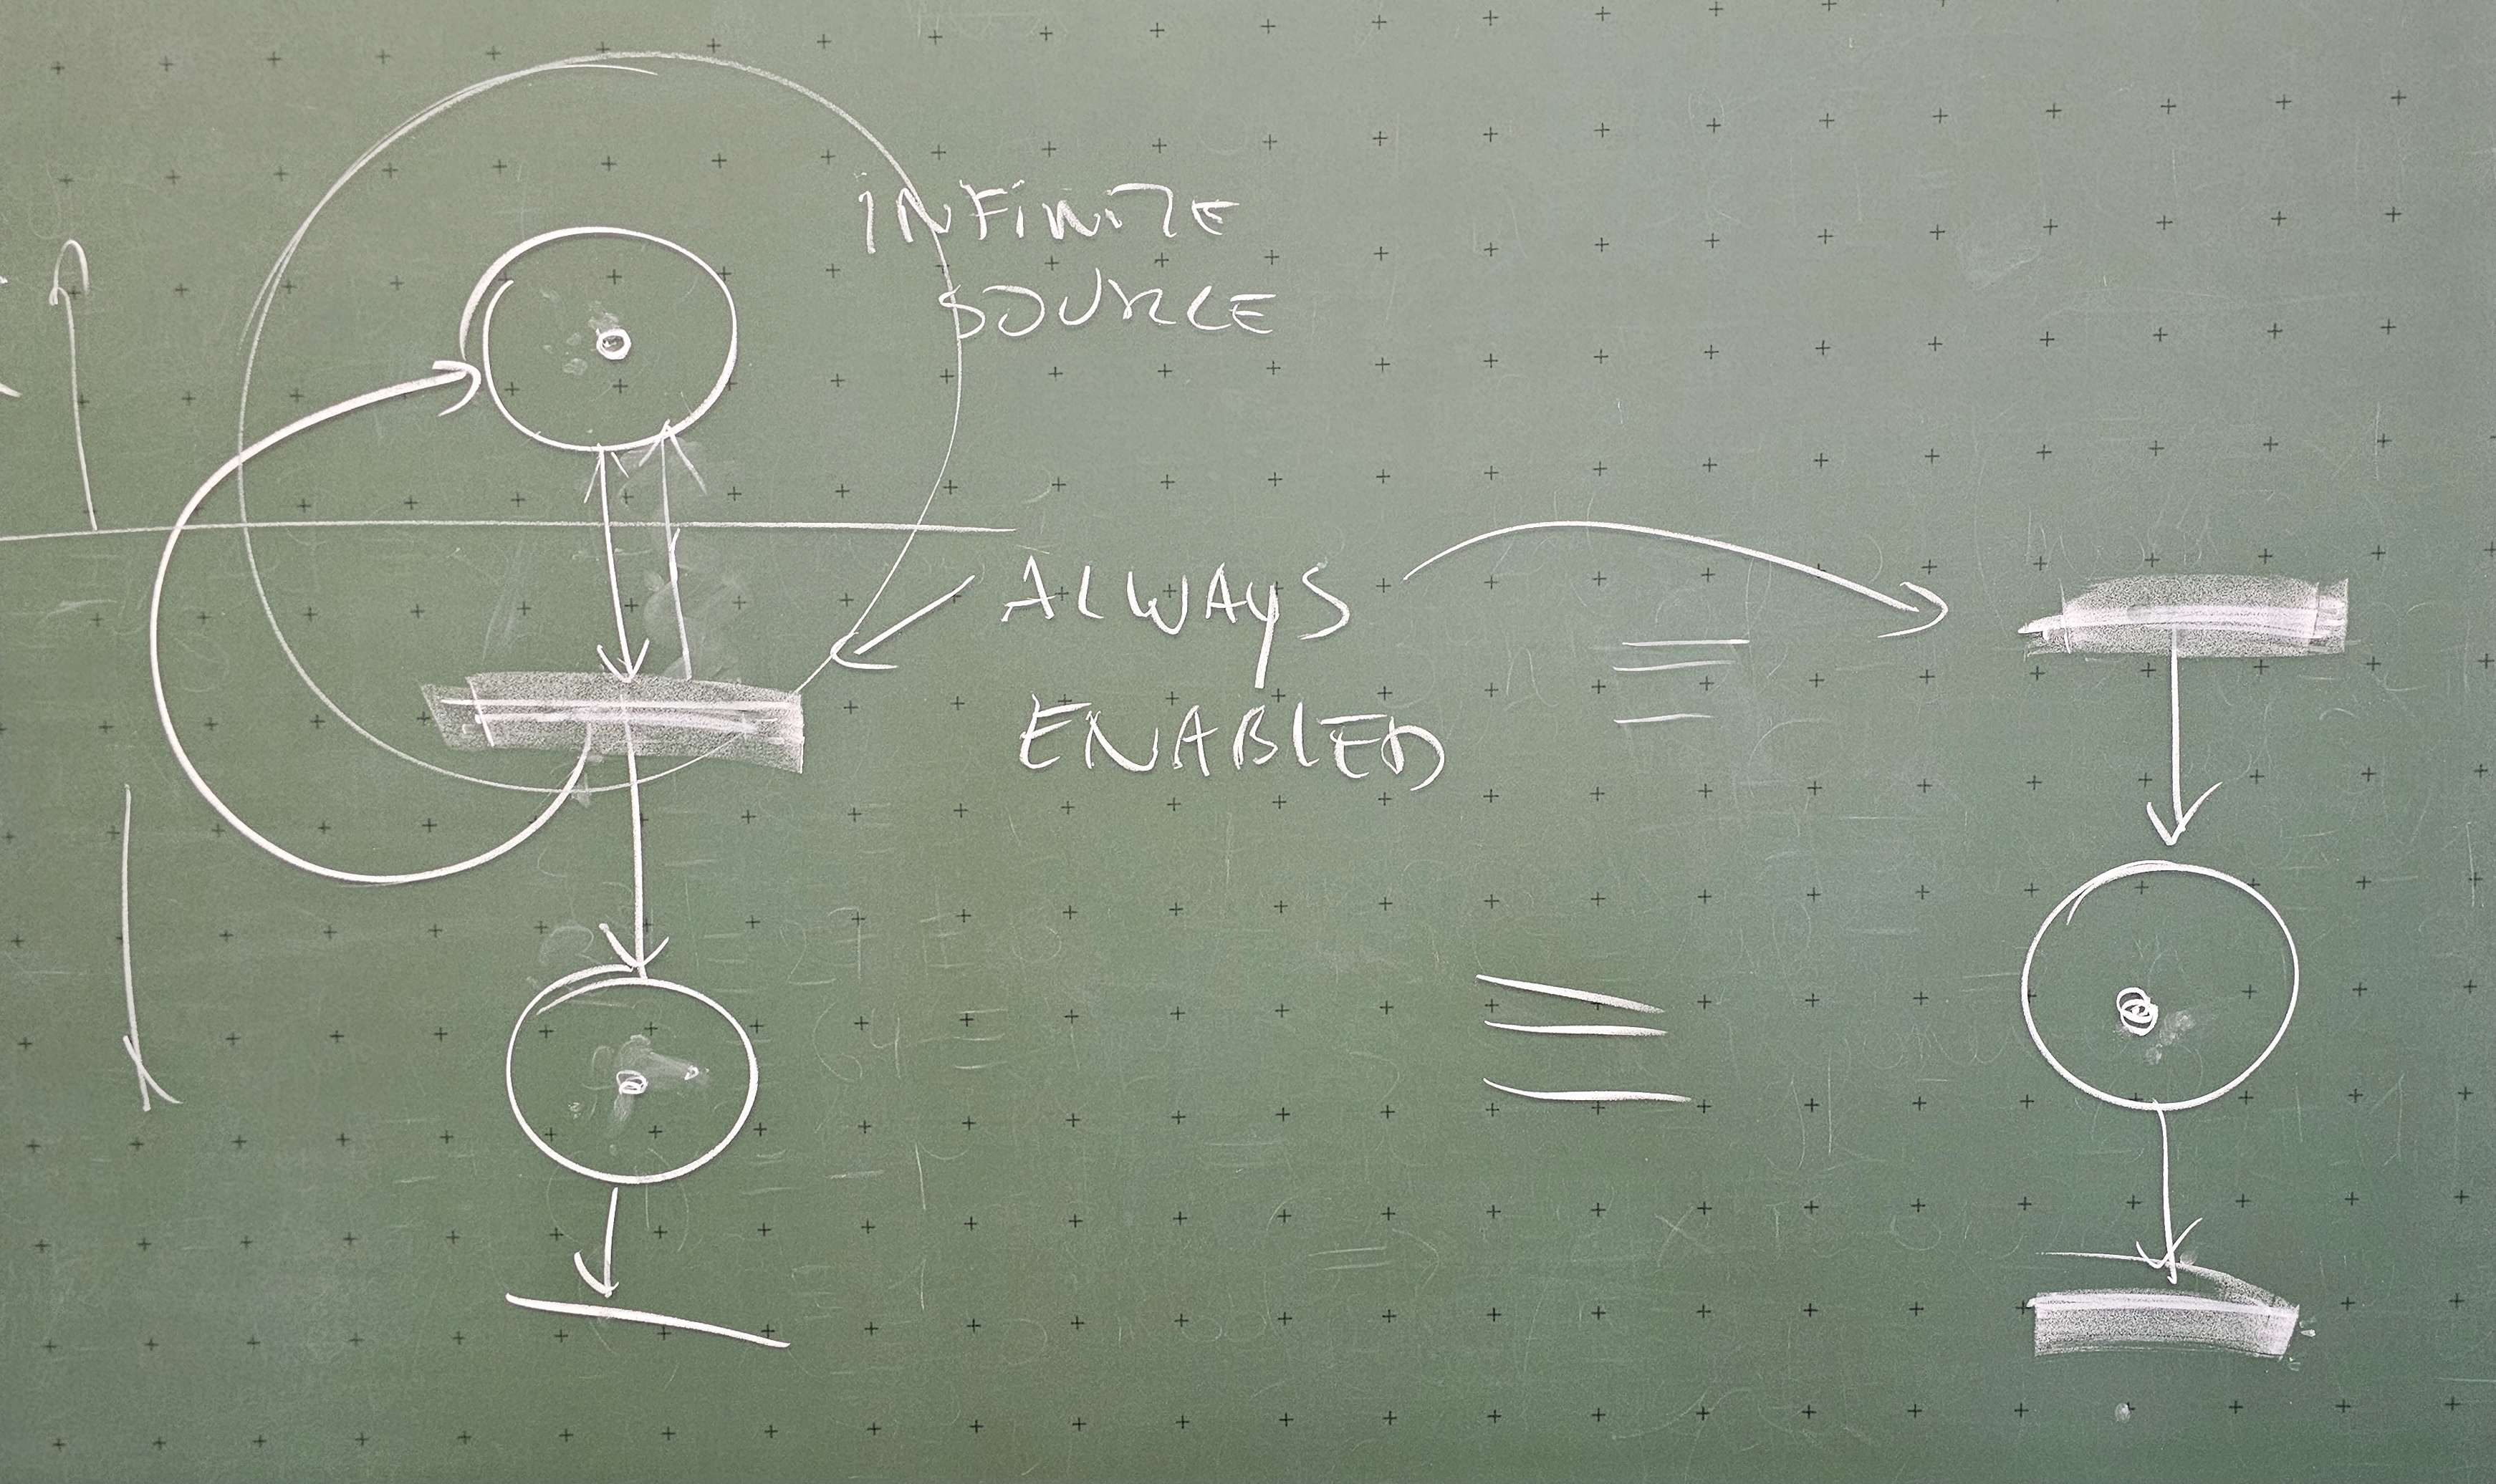 INFINITE
SOURCE
ALWAYS
ENABLED
≡
≡